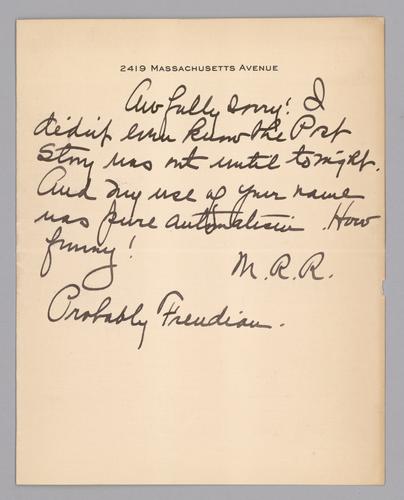 2419 MASSACHUSETTS AVENUE
Awfully sorry! I
didn't even know the Post
Story was out until tonight.
And my use of your name
was pure automatism. How
funny!
M.R.R.
Probably Freudian.